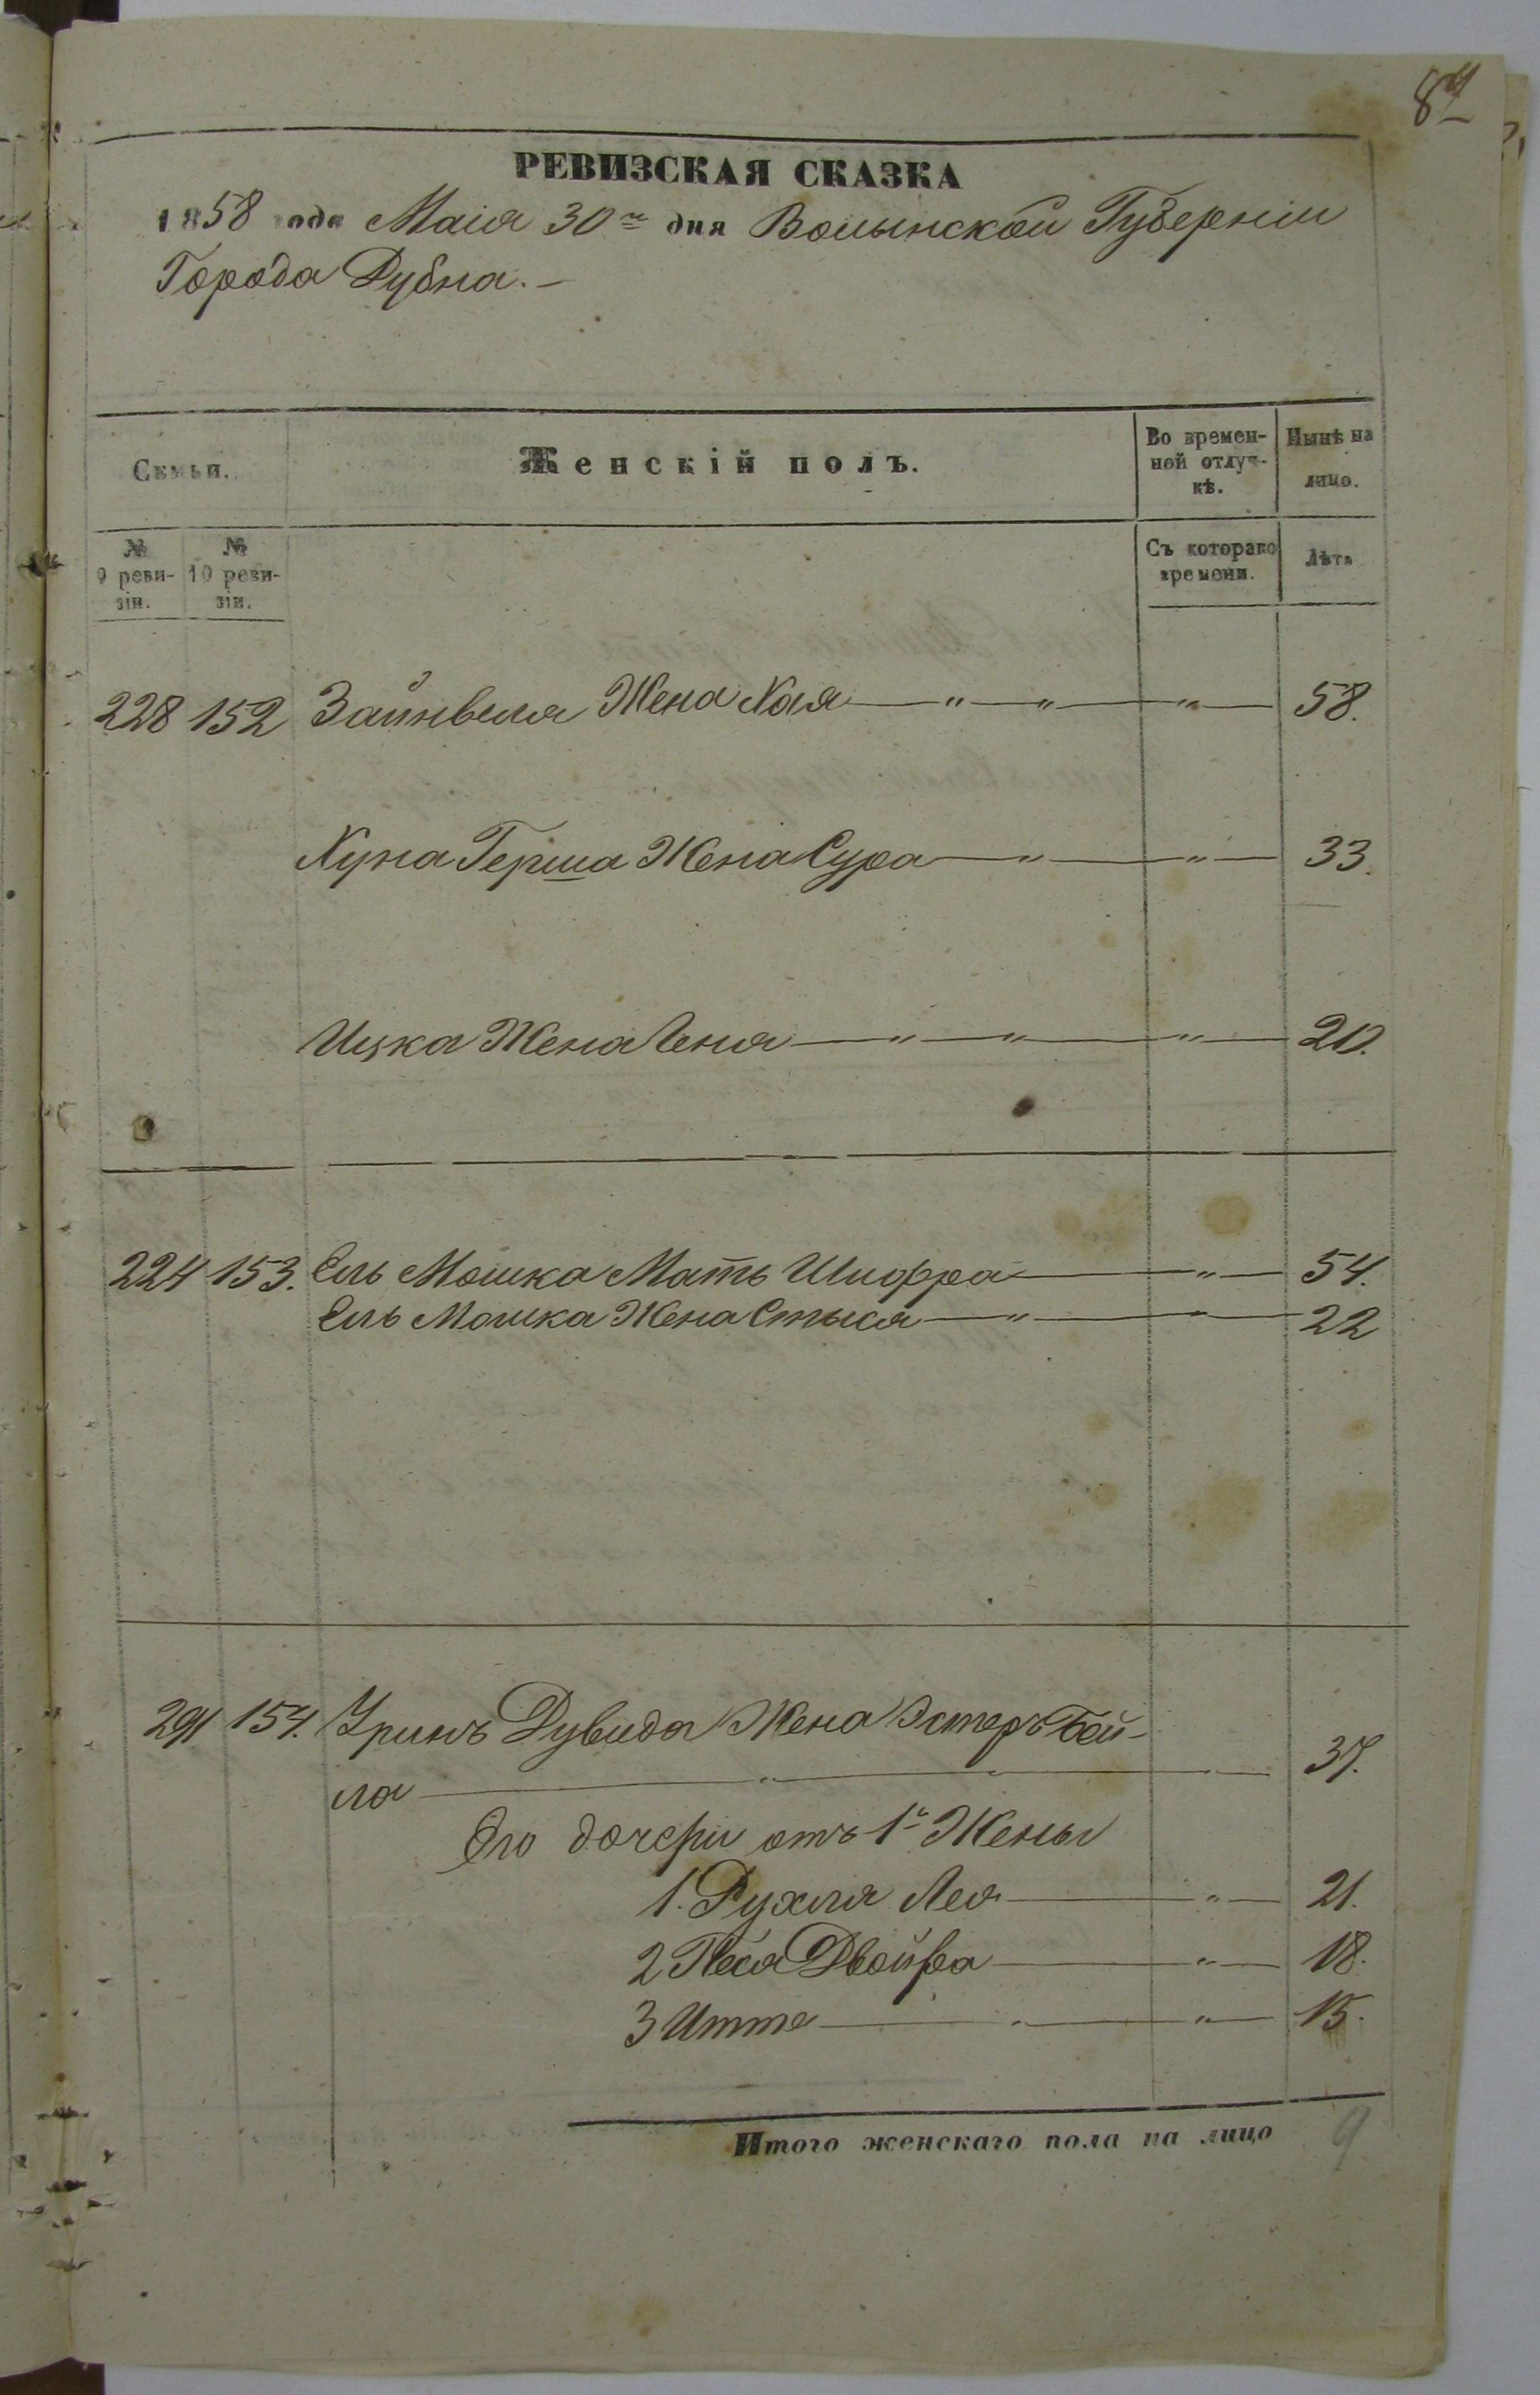 84
РЕВИЗСКАЯ СКАЗКА
1858 года Маія 30го дня Волынской Губерніи
Города Дубна.—
Семьи.
Женскій полъ.
Во времен-
ной отлуч-
кѣ.
Нынѣ на
лицо.
№
9 реви-
зіи.
№
10 реви-
зіи.
Съ котораго
времени.
Лѣта
228 152 Зайнвеля Жена Хая — " — " — " — 58.
Хуна Герша Жена Сура — " — " — 33.
Ицка Жена Геня — " — " — " — 20.
224 153. Ель Мошка Мать Шифра — " — 54.
Ель Мошка Жена Стыся — " — " — 22
291 154. Уринъ Дувида Жена Эстеръ Бей-
ла — " — 37.
Его дочери отъ 1й Жены
1. Рухля Лея — " — 21.
2 Песя Двойра — " — 18.
3 Итта — " — " — 15.
Итого женскаго пола на лицо 9